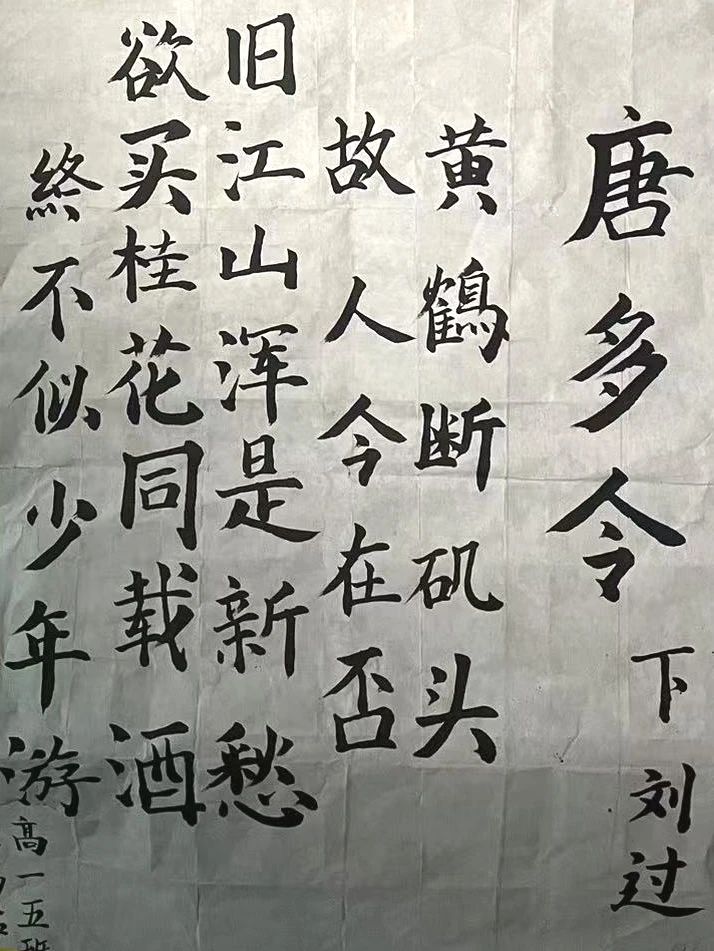 唐多令
下
刘过
黄鹤断矶头
故人今在否
旧江山浑是新愁
欲买桂花同载酒
終不似少年游
高一五班